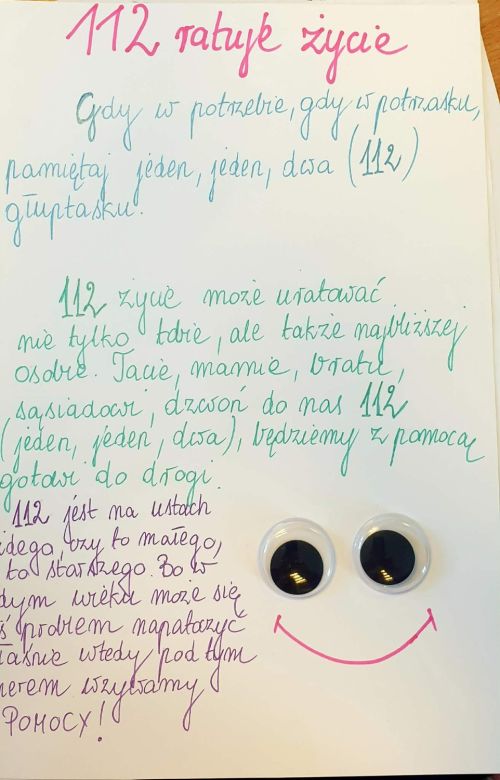 112 ratuje życie
Gdy w potrzebie, gdy w potrzasku,
pamiętaj jeden, jeden, dwa (112)
głuptasku.
112 życie może uratować
nie tylko tobie, ale także najbliższej
osobie. Tacie, mamie, bratu,
sąsiadowi, dzwoń do nas 112
(jeden, jeden, dwa), będziemy z pomocą
gotowi do drogi.
112 jest na ustach
żdego, czy to małego,
to starszego. Bo w
dym wieku może się
ś problem napatoczyć
łaśnie wtedy pod tym
merem wzywamy
POMOCY!